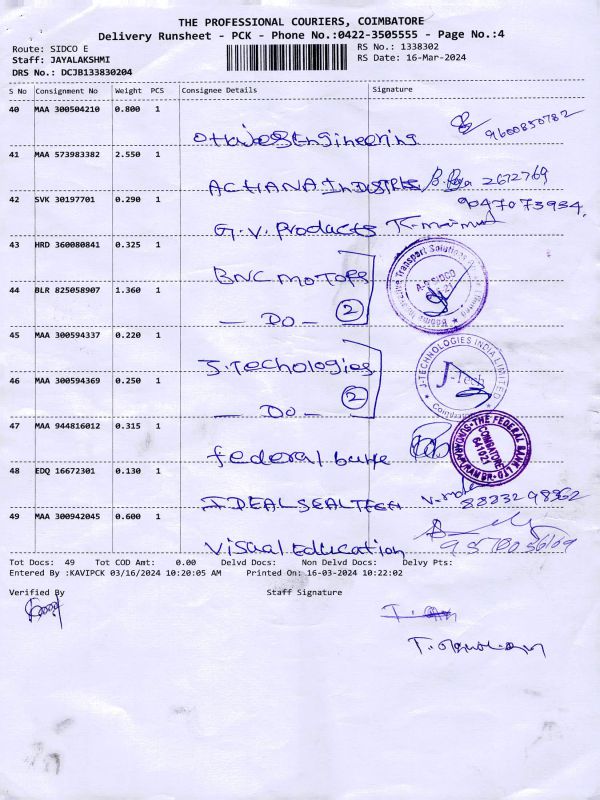 THE PROFESSIONAL COURIERS, COIMBATORE
Delivery Runsheet - PCK - Phone No.:0422-3505555 - Page No.:4
Route: SIDCO E
RS No.: 1338302
Staff: JAYALAKSHMI
RS Date: 16-Mar-2024
DRS No.: DCJB133830204
S No Consignment No Weight PCS Consignee Details Signature
40 MAA 300504210 0.800 1
Engineering 9600850782
41 MAA 573983382 2.550 1
ACHANA INDUSTRIES 2672769
42 SVK 30197701 0.290 1
9047073934.
G.V. Products
43 HRD 360080841 0.325 1
BNC MOTORS
44 BLR 825058907 1.360 1
- DO - 2
45 MAA 300594337 0.220 1
J.Techologies
J-TECHNOLOGIES INDIA LIMITED
J-Tech
46 MAA 300594369 0.250 1
- DO - 2
47 MAA 944816012 0.315 1
federal bank
THE FEDERAL BANK LTD
COIMBATORE
641021
48 EDQ 16672301 0.130 1
IDEALSEALTECH
49 MAA 300942045 0.600 1
Visual Education
Tot Docs: 49 Tot COD Amt: 0.00 Delvd Docs: Non Delvd Docs: Delvy Pts:
Entered By :KAVIPCK 03/16/2024 10:20:05 AM Printed On: 16-03-2024 10:22:02
Verified By Staff Signature